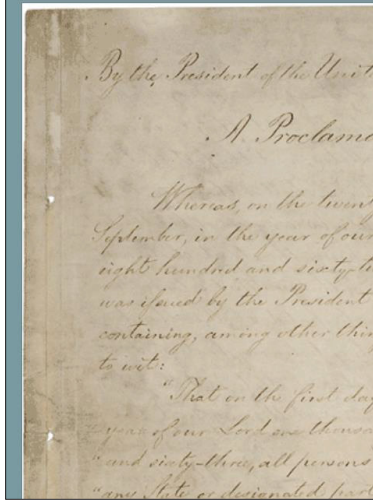 By the President of the Unit
A Proclama
Whereas, on the twent
September, in the year of our
eight hundred and sixty-t
was issued by the President
containing, among other thin
to wit:
"That on the first day
year of our Lord one thousa
"and sixty-three, all persons
"any State or designated part